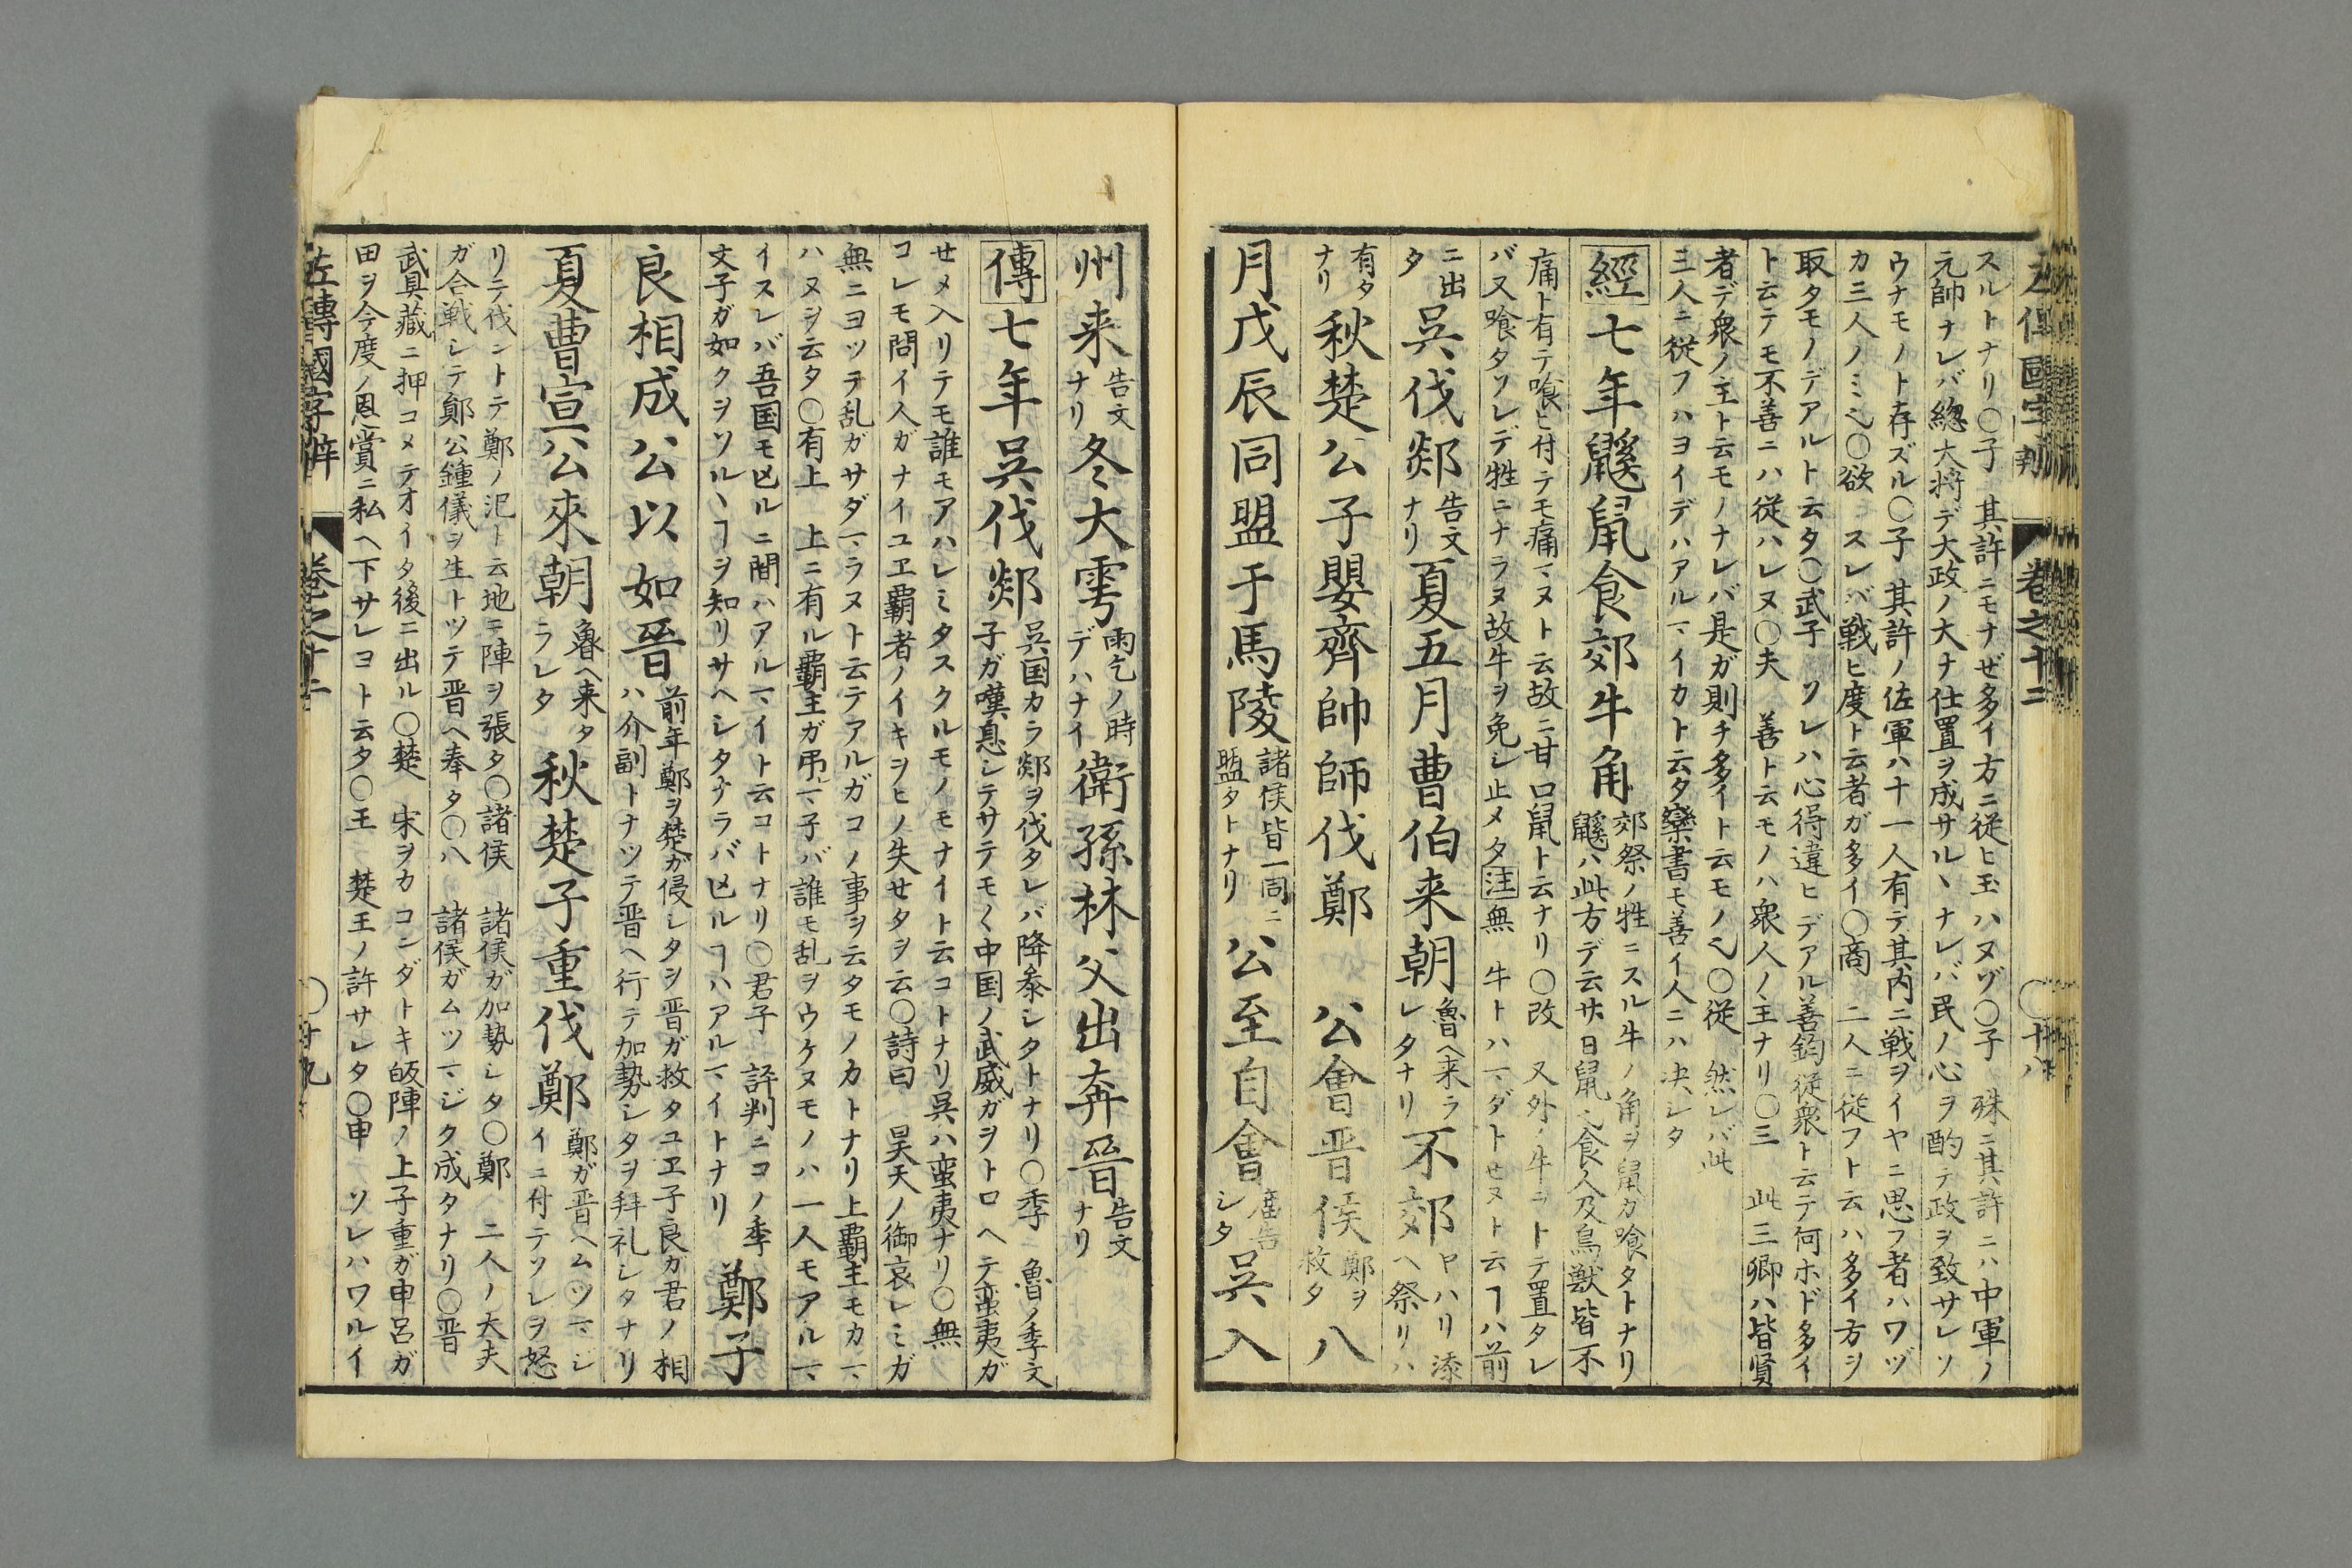 左傳國字辨 卷之十二 ○十八
スルトナリ○子 其許ニモナゼ多イ方ニ従ヒ玉ハヌヅ○子 殊ニ其許ニハ中軍ノ
元帥ナレバ總大将デ大政ノ大ナ仕置ヲ成サルヽナレバ民ノ心ヲ酌テ政ヲ致サレソ
ウナモノト存ズル○子 其許ノ佐軍ハ十一人有テ其内ニ戦ヲイヤニ思フ者ハワヅ
カ三人ノミ也○欲 スレバ戦ヒ度ト云者ガ多イ○商 二人ニ従フト云ハ多イ方ヲ
取タモノデアルト云タ○武子 ソレハ心得違ヒデアル善鈞従衆ト云テ何ホド多イ
ト云テモ不善ニハ従ハレヌ○夫 善ト云モノハ衆人ノ主ナリ○三 此三卿ハ皆賢
者デ衆ノ主ト云モノナレバ是ガ則チ多イト云モノ也○従 然レバ此
三人ニ従フハヨイデハアルマイカト云タ欒書モ善イ人ニハ决レタ
經七年鼷鼠食郊牛角
郊祭ノ牲ニスル牛ノ角ヲ鼠カ喰タトナリ
鼷ハ此方デ云サ日鼠也食人及鳥獣皆不
痛ト有テ喰ヒ付テモ痛マヌト云故ニ甘口鼠ト云ナリ○改 又外ノ牛ニトテ置タレ
バ又喰タソレデ牲ニナラヌ故牛ヲ免シ止メタ注無 牛トハマダトセヌト云ヿハ前
ニ出
タ
呉伐郯
告文
ナリ
夏五月曹伯来朝
魯ヘ来ラ
レタナリ
不郊
ヤハリ漆
ヘ祭リハ
有タ
ナリ
秋楚公子嬰齊帥師伐鄭 公會晋侯
鄭ヲ
救タ
八
月戊辰同盟于馬陵
諸侯皆一同ニ
盟タトナリ
公至自會
廟告
シタ
呉入
州来
告文
ナリ
冬大雩
雨乞ノ時
デハナイ
衛孫林父出奔晉
告文
ナリ
傳七年呉伐郯
呉国カラ郯ヲ伐タレバ降參シタトナリ○季 魯ノ季文
子ガ嘆息シテサテモ〱中国ノ武威ガヲトロヘテ蛮夷ガ
せメ入リテモ誰モアハレミタスクルモノモナイト云コトナリ呉ハ蛮夷ナリ○無
コレモ問イ人ガナイユヱ覇者ノイキヲヒノ失せタヲ云○詩曰 昊天ノ御哀レミガ
無ニヨツテ乱ガサダマラヌト云テアルガコノ事ヲ云タモノカトナリ上覇主モカマ
ハヌヲ云タ○有上 上ニ有ル覇主ガ弔マ子バ誰モ乱ヲウケヌモノハ一人モアルマ
イスレバ吾国モ凶ルニ間ハアルマイト云コトナリ○君子 評判ニコノ季
文子ガ如クヲソルヽヿヲ知リサヘシタナラバ凶ルヿハアルマイトナリ
鄭子
良相成公以如晉
前年鄭ヲ楚ガ侵シタヲ晋ガ救タユヱ子良カ君ノ相
ハ介副トナツテ晋ヘ行テ加勢シタヲ拜礼シタナリ
夏曹宣公來朝
魯ヘ来タ
ラレタ
秋楚子重伐鄭
鄭ガ晋ヘムツマジ
イニ付テソレヲ怒
リテ伐ントテ鄭ノ氾ト云地ニ陣ヲ張タ○諸侯 諸侯ガ加勢シタ○鄭 二人ノ大夫
ガ合戦シテ鄭公鍾儀ヲ生トツテ晋ヘ奉タ○八 諸侯ガムツマジク成タナリ○晋
武具藏ニ押コメテオイタ後ニ出ル○楚 宋ヲカコンダトキ皈陣ノ上子重ガ申呂ガ
田ヲ今度ノ恩賞ニ私ヘ下サレヨト云タ○王 楚王ノ許サレタ○申 ソレハワルイ
左傳國字辨 卷之十二 ○十九